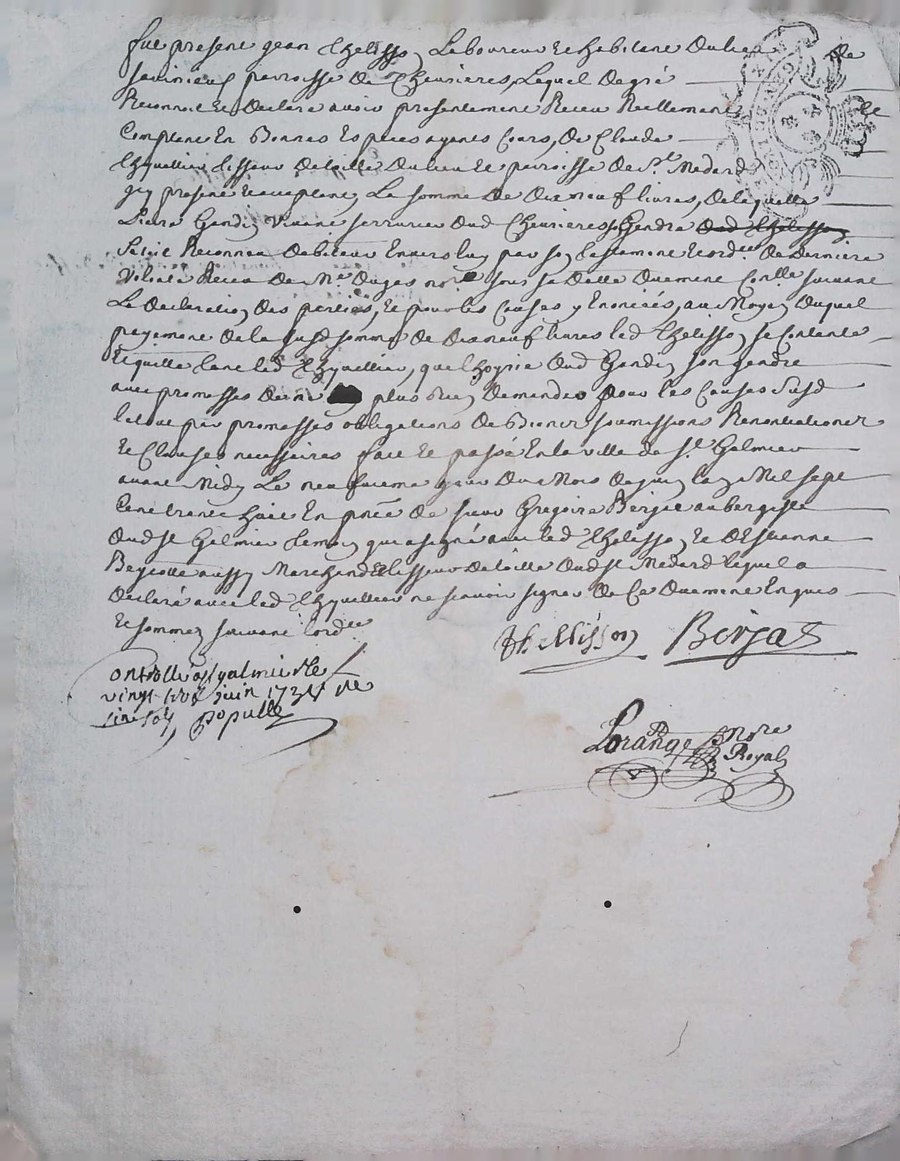 fut present jean Thelisson Laboureur et habitant du lieu de
parroisse de Chevrieres, Lequel de gré
Reconnoit et declare avoir presentement Receu Reellement et
Comptant En Bonnes Especes ayant Cours, de Claude
Thyvellier tisseur de toille du lieu et parroisse de St Medard
icy present et acceptant, La somme de dixneuf livres, de laquelle
vivant serrurier dud Chevrieres, Gendre dud Thelisson
Reconneu debiteur Envers luy par son testament de derniere
Volonté Receu de Me Dugas nore sous sa datte suivant
La declaration des parties, Et pour les Causes y Enoncées, au Moyen duquel
payement de la susd somme de dixneuf livres led Thelisson se Contente
Et quitte tant led Thyvellier, que son gendre
avec promesses de ne plus Rien demander pour les Causes susd
par promesses obligations de Biens soumissions Renontiations
Et Clauses necessaires fait et passé En la ville de St Galmier
avant Midy Le neufvieme jour du Mois de juin Mil sept
Cent trente huit En pnce de sieur Gregoire Berjat aubergiste
dud St Galmier temoin qui a signé avec led Thelisson Et d'Estienne
aussy Marchand tisseur de toille dud St Medard Lequel a
declaré avec led Thyvellier ne scavoir signer de Ce Enquis
Et sommez suivant lordce
Thellisson Berjat
Controllé a St galmier le
vingt juin 1738
cinq sols populle
Lorange Nore
Royal